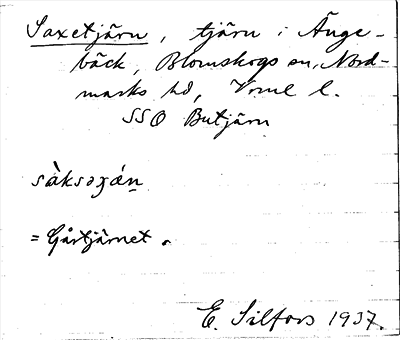 Saxetjärn, tjärn i Änge-
bäck, Blomskogs sn, Nord-
marks hd, Vrml l.
SSO Butjärn
sàksəʒǽn
= Gårtjärnet.
E. Silfors 1937.